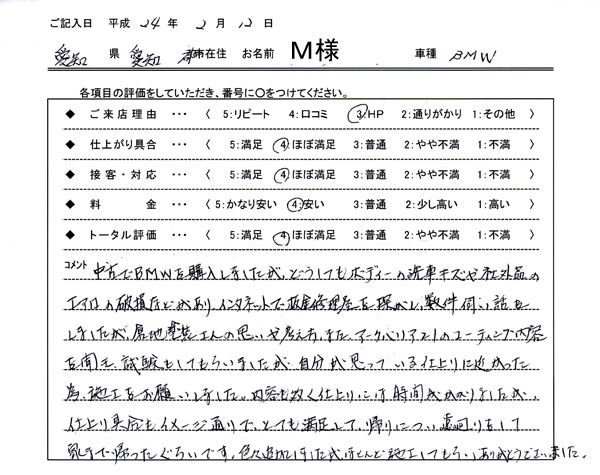 ご記入日 平成 24 年 2 月 12 日
愛知 県 愛知 郡市在住 お名前 M様 車種 BMW
各項目の評価をしていただき、番号に○をつけてください。
◆ ご来店理由 ･･･ 〈 5:リピート 4:口コミ 3:HP 2:通りがかり 1:その他 〉
◆ 仕上がり具合 ･･･ 〈 5:満足 4:ほぼ満足 3:普通 2:やや不満 1:不満 〉
◆ 接客・対応 ･･･ 〈 5:満足 4:ほぼ満足 3:普通 2:やや不満 1:不満 〉
◆ 料金 ･･･ 〈 5:かなり安い 4:安い 3:普通 2:少し高い 1:高い 〉
◆ トータル評価 ･･･ 〈 5:満足 4:ほぼ満足 3:普通 2:やや不満 1:不満 〉
コメント 中古でBMWを購入しましたが、どうしてもボディーの洗車キズや社外品の
エアロの破損などがあり、インターネットで板金修理屋を探がし、数件伺い話を
しましたが、さんの思いや考え方、また、アークバリア21のコーティング内容
を聞き、試験もしてもらいましたが自分が思っている仕上りに近かった
為、施工をお願いしました。内容も多く仕上りには時間がかかりましたが、
仕上り具合もイメージ通りで、とても満足して、帰りについ遠回りをして
家まで帰ったぐらいです。色々追加しましたがほとんど施工してもらいありがとうございました。